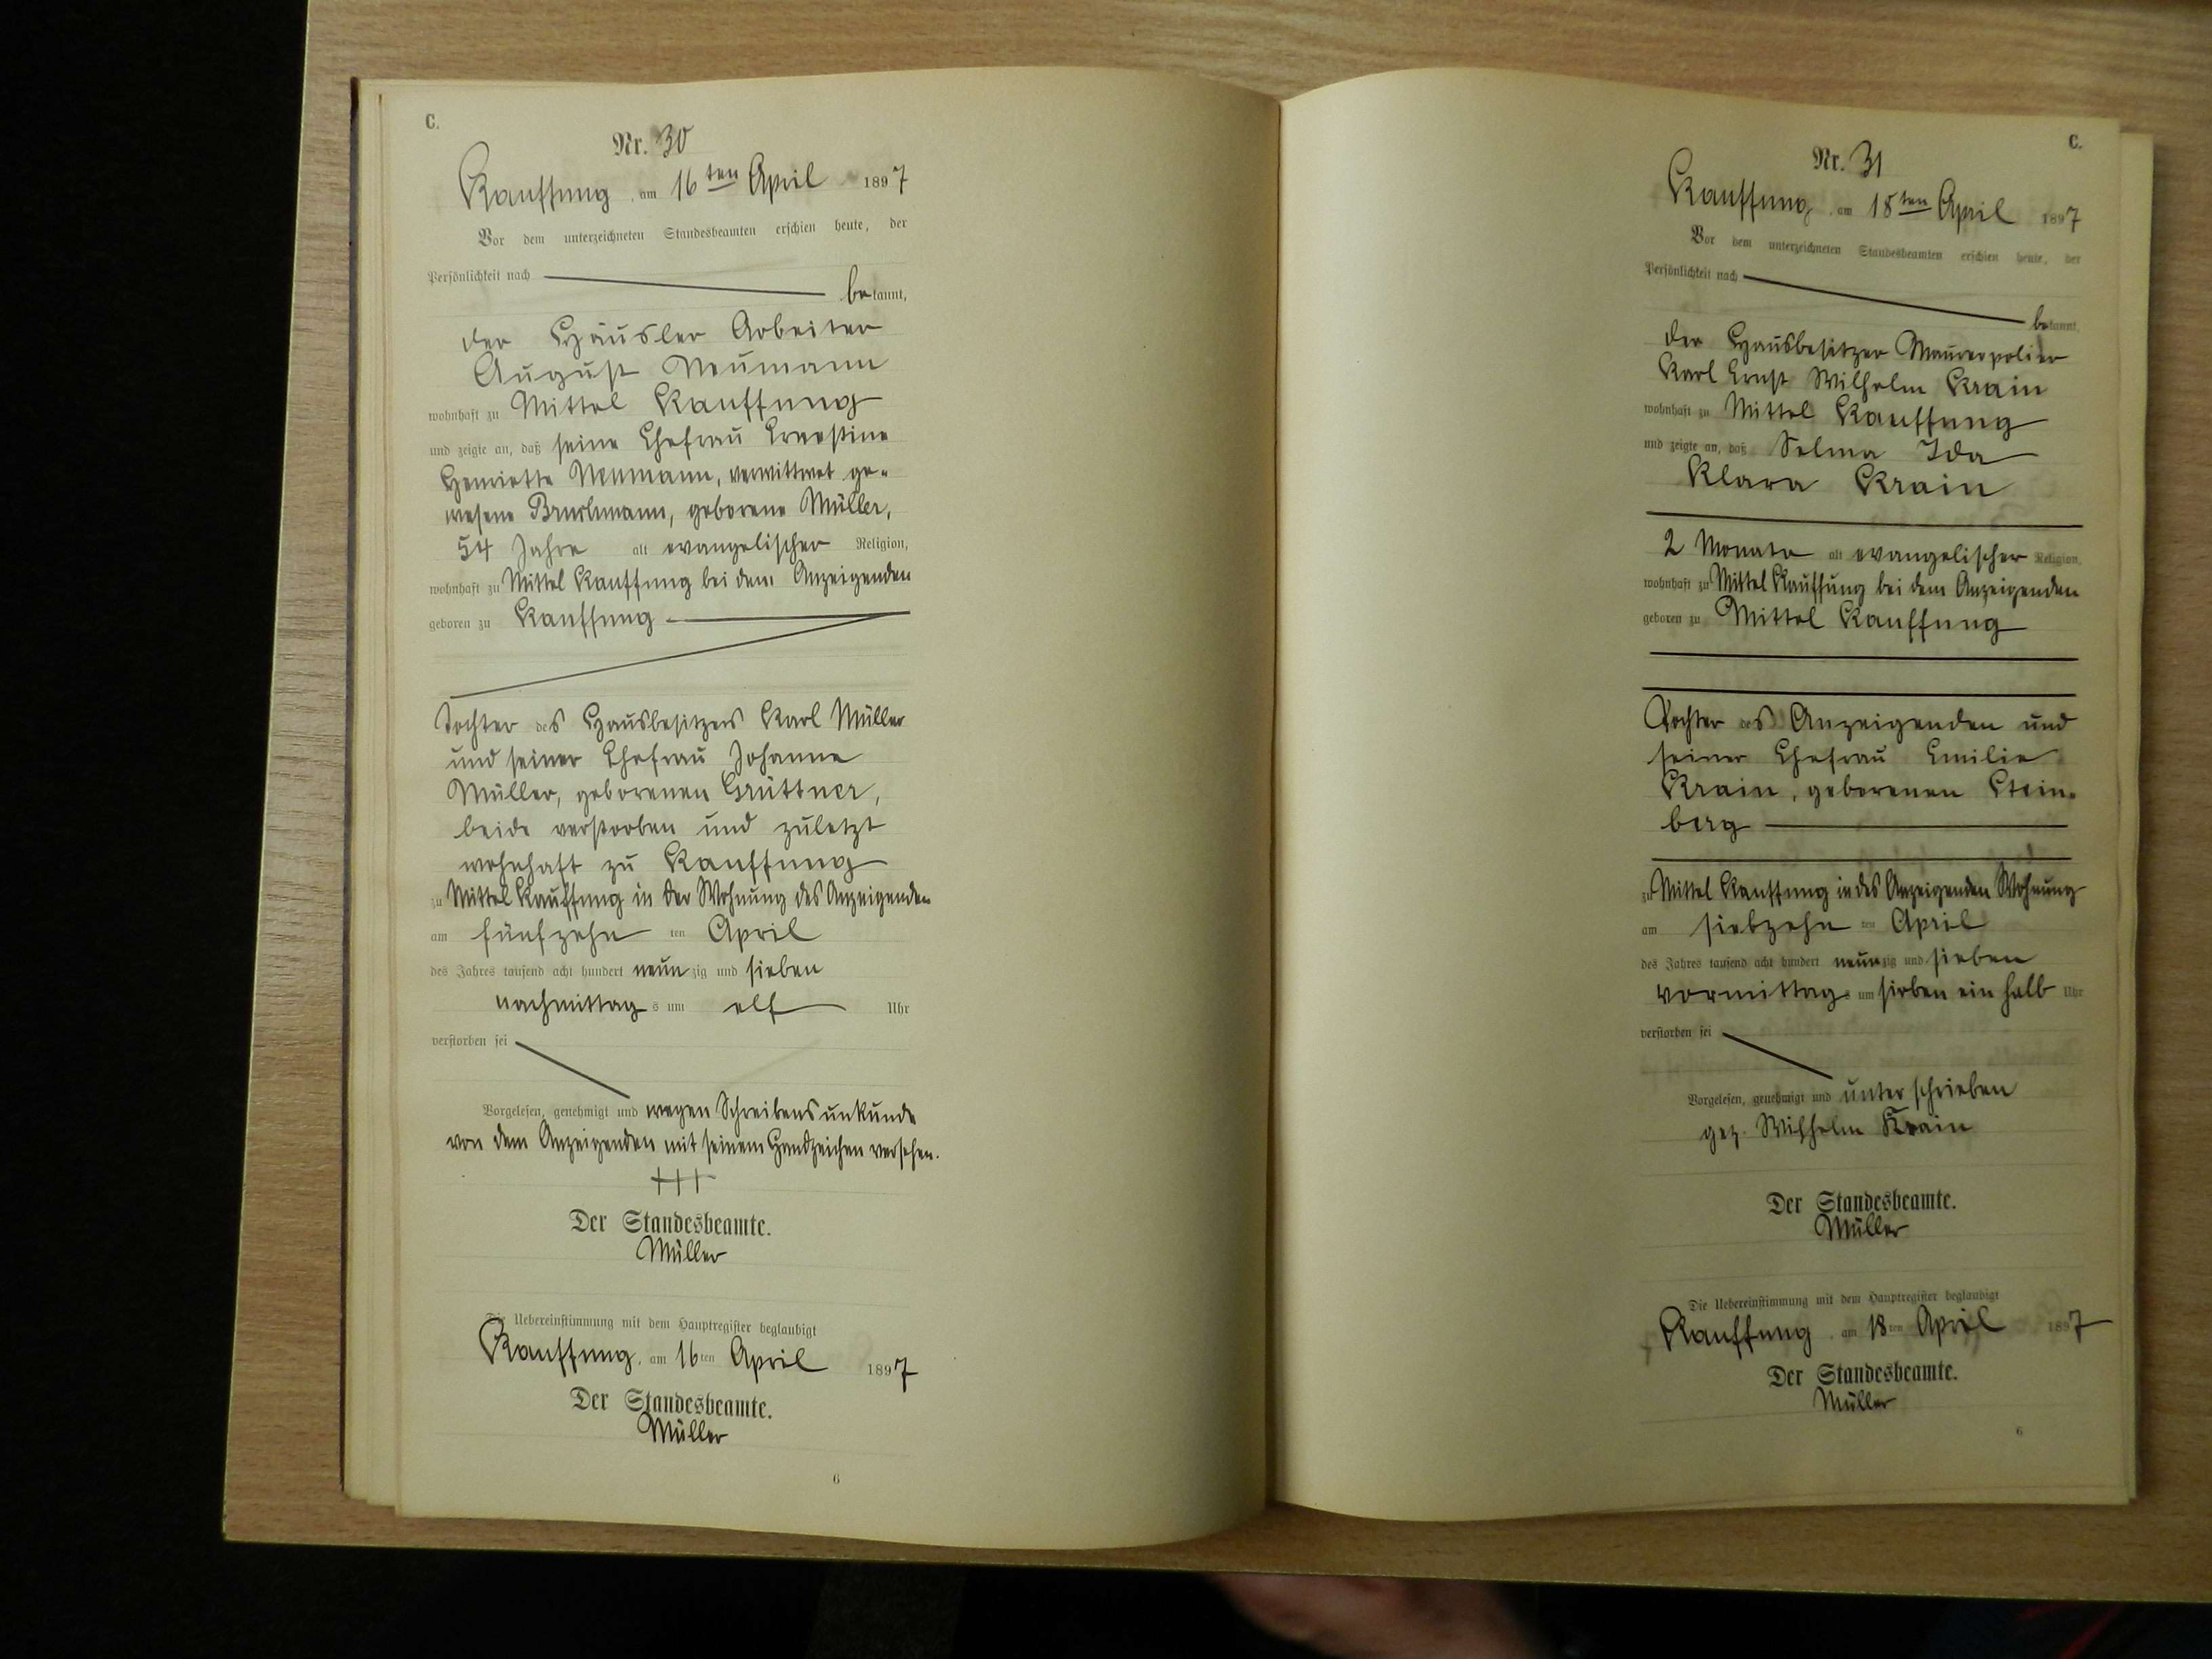 C.
Nr. 30
Kauffung, am 16ten April 1897
Vor dem unterzeichneten Standesbeamten erschien heute, der
Persönlichkeit nach
bekannt,
der Häusler Arbeiter
August Neumann
wohnhaft zu Mittel Kauffung
und zeigte an, daß seine Ehefrau Ernestine
Henriette Neumann, verwittwet ge-
wesene Bruchmann, geborene Müller,
54 Jahre alt evangelischer Religion,
wohnhaft zu Mittel Kauffung bei dem Anzeigenden
geboren zu Kauffung
Tochter des Hausbesitzers Karl Müller
und seiner Ehefrau Johanne
Müller, geborenen Grüttner,
beide verstorben und zuletzt
wohnhaft zu Kauffung
zu Mittel Kauffung in der Wohnung des Anzeigenden
am fünfzehn ten April
des Jahres tausend acht hundert neunzig und sieben
nachmittags um elf Uhr
verstorben sei
Vorgelesen, genehmigt und wegen Schreibensunkunde
von dem Anzeigenden mit seinem Handzeichen versehen.
+++
Der Standesbeamte.
Müller
Die Uebereinstimmung mit dem Hauptregister beglaubigt
Kauffung, am 16ten April 1897
Der Standesbeamte.
Müller
6
C.
Nr. 31
Kauffung, am 18ten April 1897
Vor dem unterzeichneten Standesbeamten erschien heute, der
Persönlichkeit nach
bekannt,
der Hausbesitzer Maurerpolier
Karl Ernst Wilhelm Krain
wohnhaft zu Mittel Kauffung
und zeigte an, daß Selma Ida
Klara Krain
2 Monate alt evangelischer Religion,
wohnhaft zu Mittel Kauffung bei dem Anzeigenden
geboren zu Mittel Kauffung
Tochter des Anzeigenden und
seiner Ehefrau Emilie
Krain, geborenen Stein-
berg
zu Mittel Kauffung in des Anzeigenden Wohnung
am siebzehn ten April
des Jahres tausend acht hundert neunzig und sieben
vormittags um sieben ein halb Uhr
verstorben sei
Vorgelesen, genehmigt und unterschrieben
gez. Wilhelm Krain
Der Standesbeamte.
Müller
Die Uebereinstimmung mit dem Hauptregister beglaubigt
Kauffung, am 18ten April 1897
Der Standesbeamte.
Müller
6